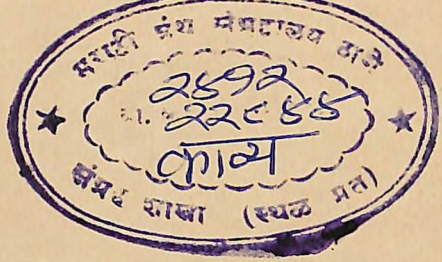 मराठी ग्रंथ संग्रहालय ठाणे
२५१२
२२८४४
काव्य
संग्रह शाखा (स्थळ प्रत)